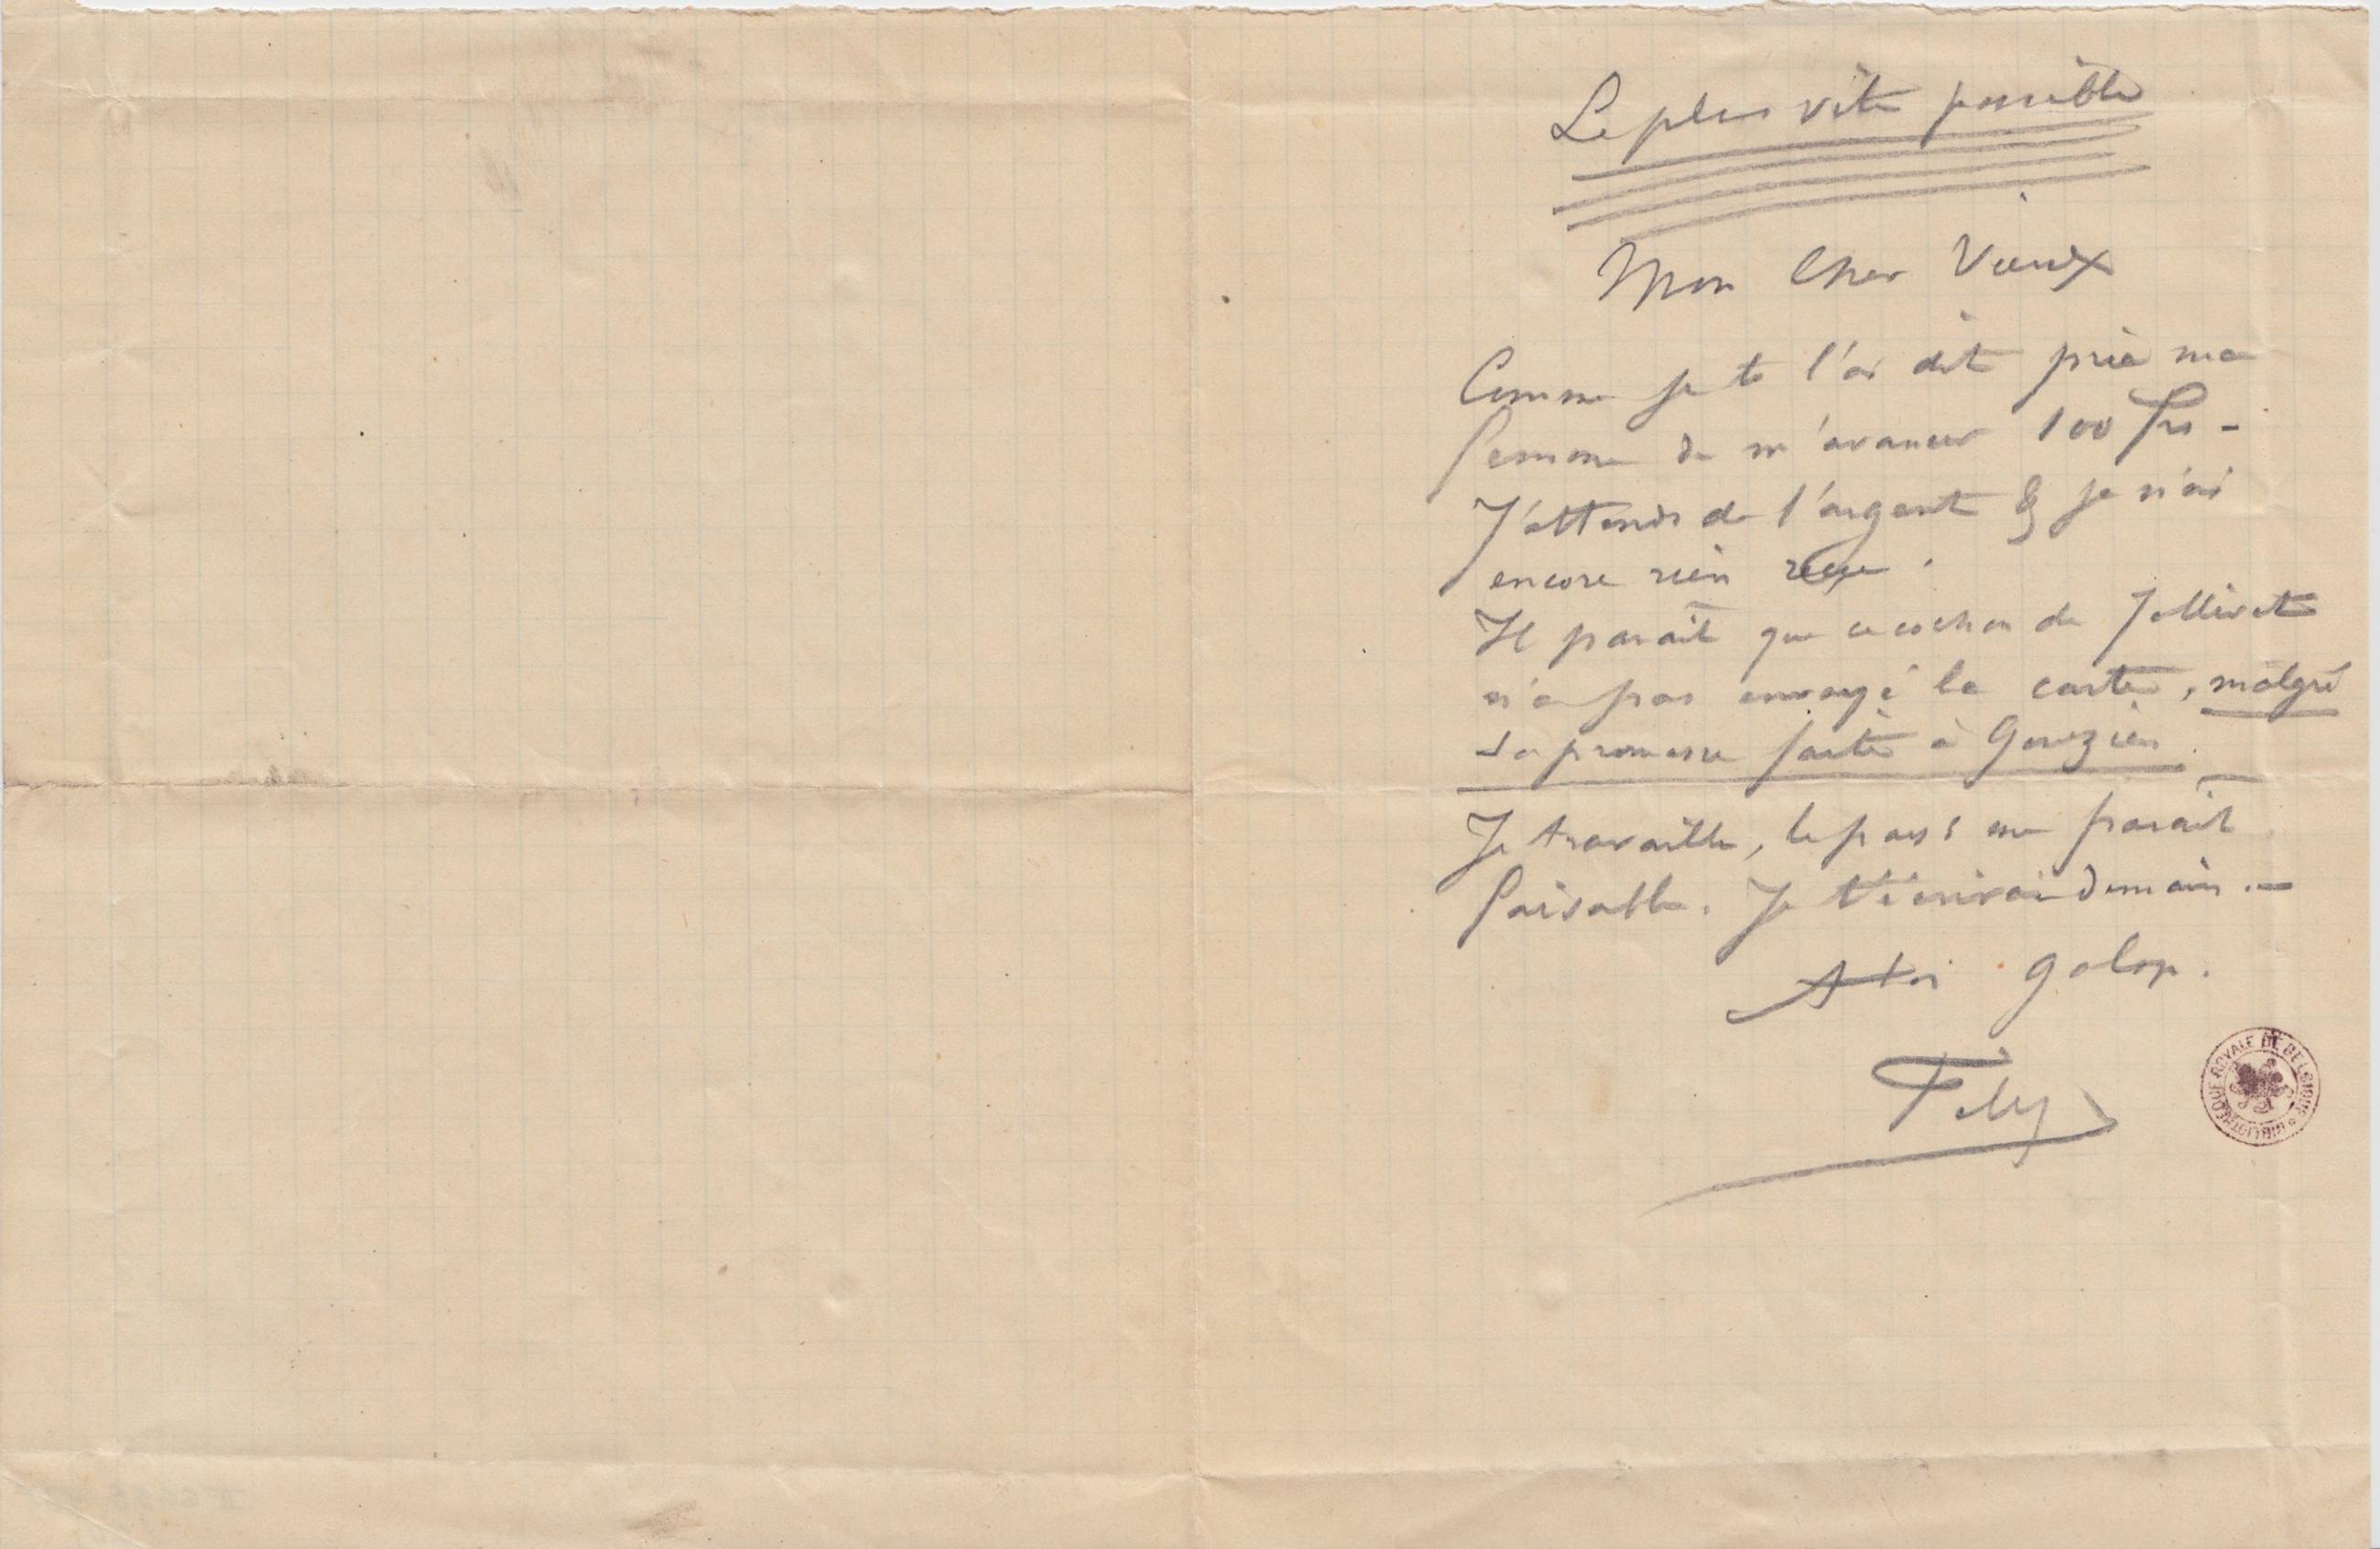 Le plus vite possible
Mon Cher Vieux
Comme je te l'ai dit prie ma
femme de m'avancer 100 frs -
J'attends de l'argent & je n'ai
encore rien reçu.
Il parait que ce cochon de Jollivet
n'a pas envoyé la carte, malgré
sa promesse faite à Gouzien.
Je travaille, le pays me parait
faisable. Je t'écrirai demain. —
A toi galop.
Fély
BIBLIOTHÈQUE ROYALE DE BELGIQUE